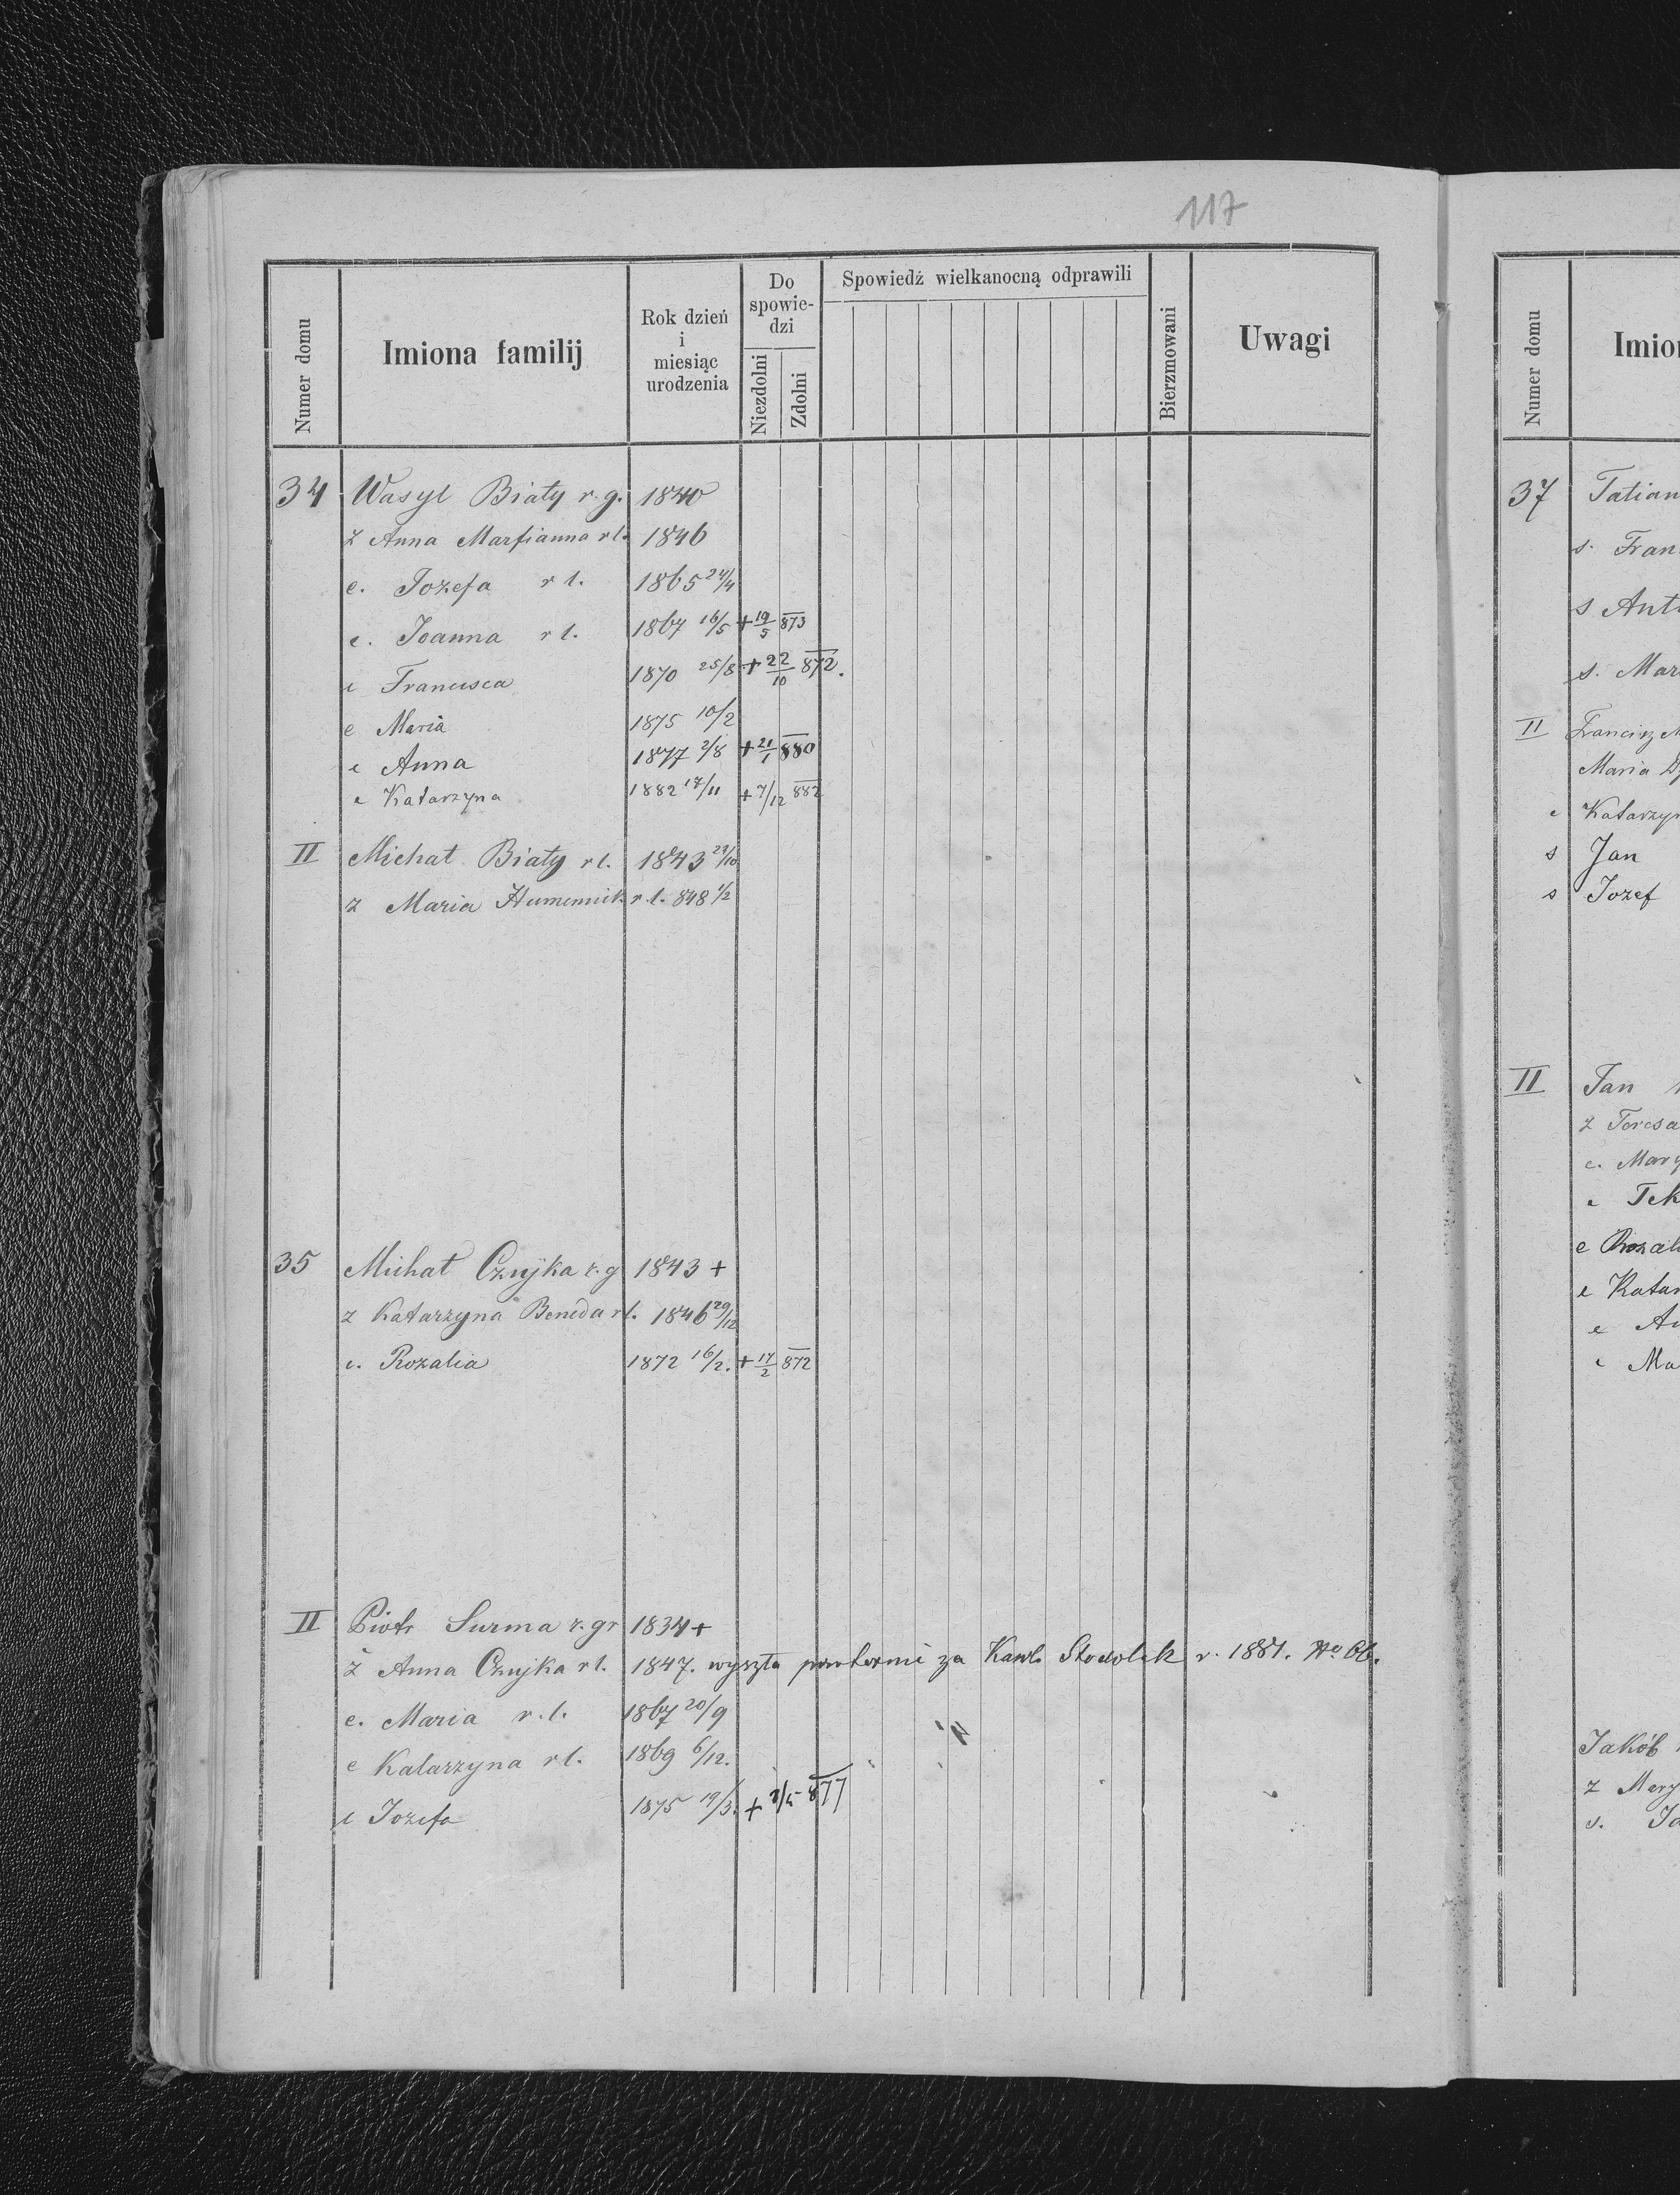 117
Numer domu | Imiona familij | Rok dzień i miesiąc urodzenia | Do spowiedzi | Niezdolni | Zdolni | Spowiedź wielkanocną odprawili | Bierzmowani | Uwagi
34 Wasyl Biały r. g. 1840
ż Anna Marfianna rl. 1846
c. Jozefa r l. 1865 24/4
c. Joanna r l. 1867 16/5 + 19/5 873
c Francisca 1870 25/8 + 22/10 872.
c Maria 1875 10/2
c Anna 1877 2/8 + 21/1 880
c Katarzyna 1882 17/11 + 7/12 882
II Michał Biały rl. 1843 29/10
ż Maria Humennik r. l. 848 1/2
35 Michał Czujka r. g 1843 +
ż Katarzyna Beneda rl. 1846 29/12
c. Rozalia 1872 16/2. + 17/2 872
II Piotr Surma r. gr 1834 +
ż Anna Czujka rl. 1847. wyszła powtornie za Stodolak r. 1881. No 66.
c. Maria r. l. 1867 20/9
c Katarzyna rl. 1869 6/12.
c Jozefa 1875 19/3. + 2/5 877
Numer domu | Imion
37 Tatian
s. Fran
s Ant
s. Mar
II Francisz
Maria
c Katarzyn
s Jan
s Jozef
II Jan
ż Teresa
c. Mary
c Tek
c Rozali
c Katar
c An
c Ma
Jakób
ż Mary
s. Ja